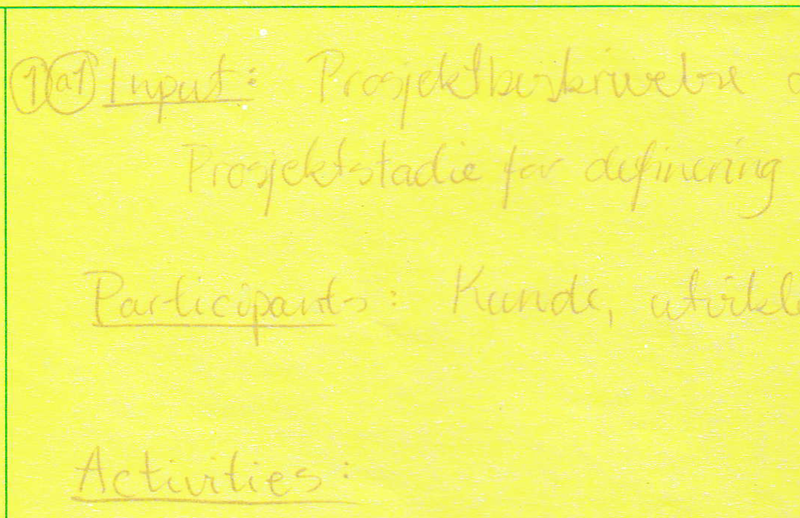 1 a1 Input: Prosjektbeskrivelse
Prosjektstadie for definering
Participants: Kunde, utvikle
Activities: